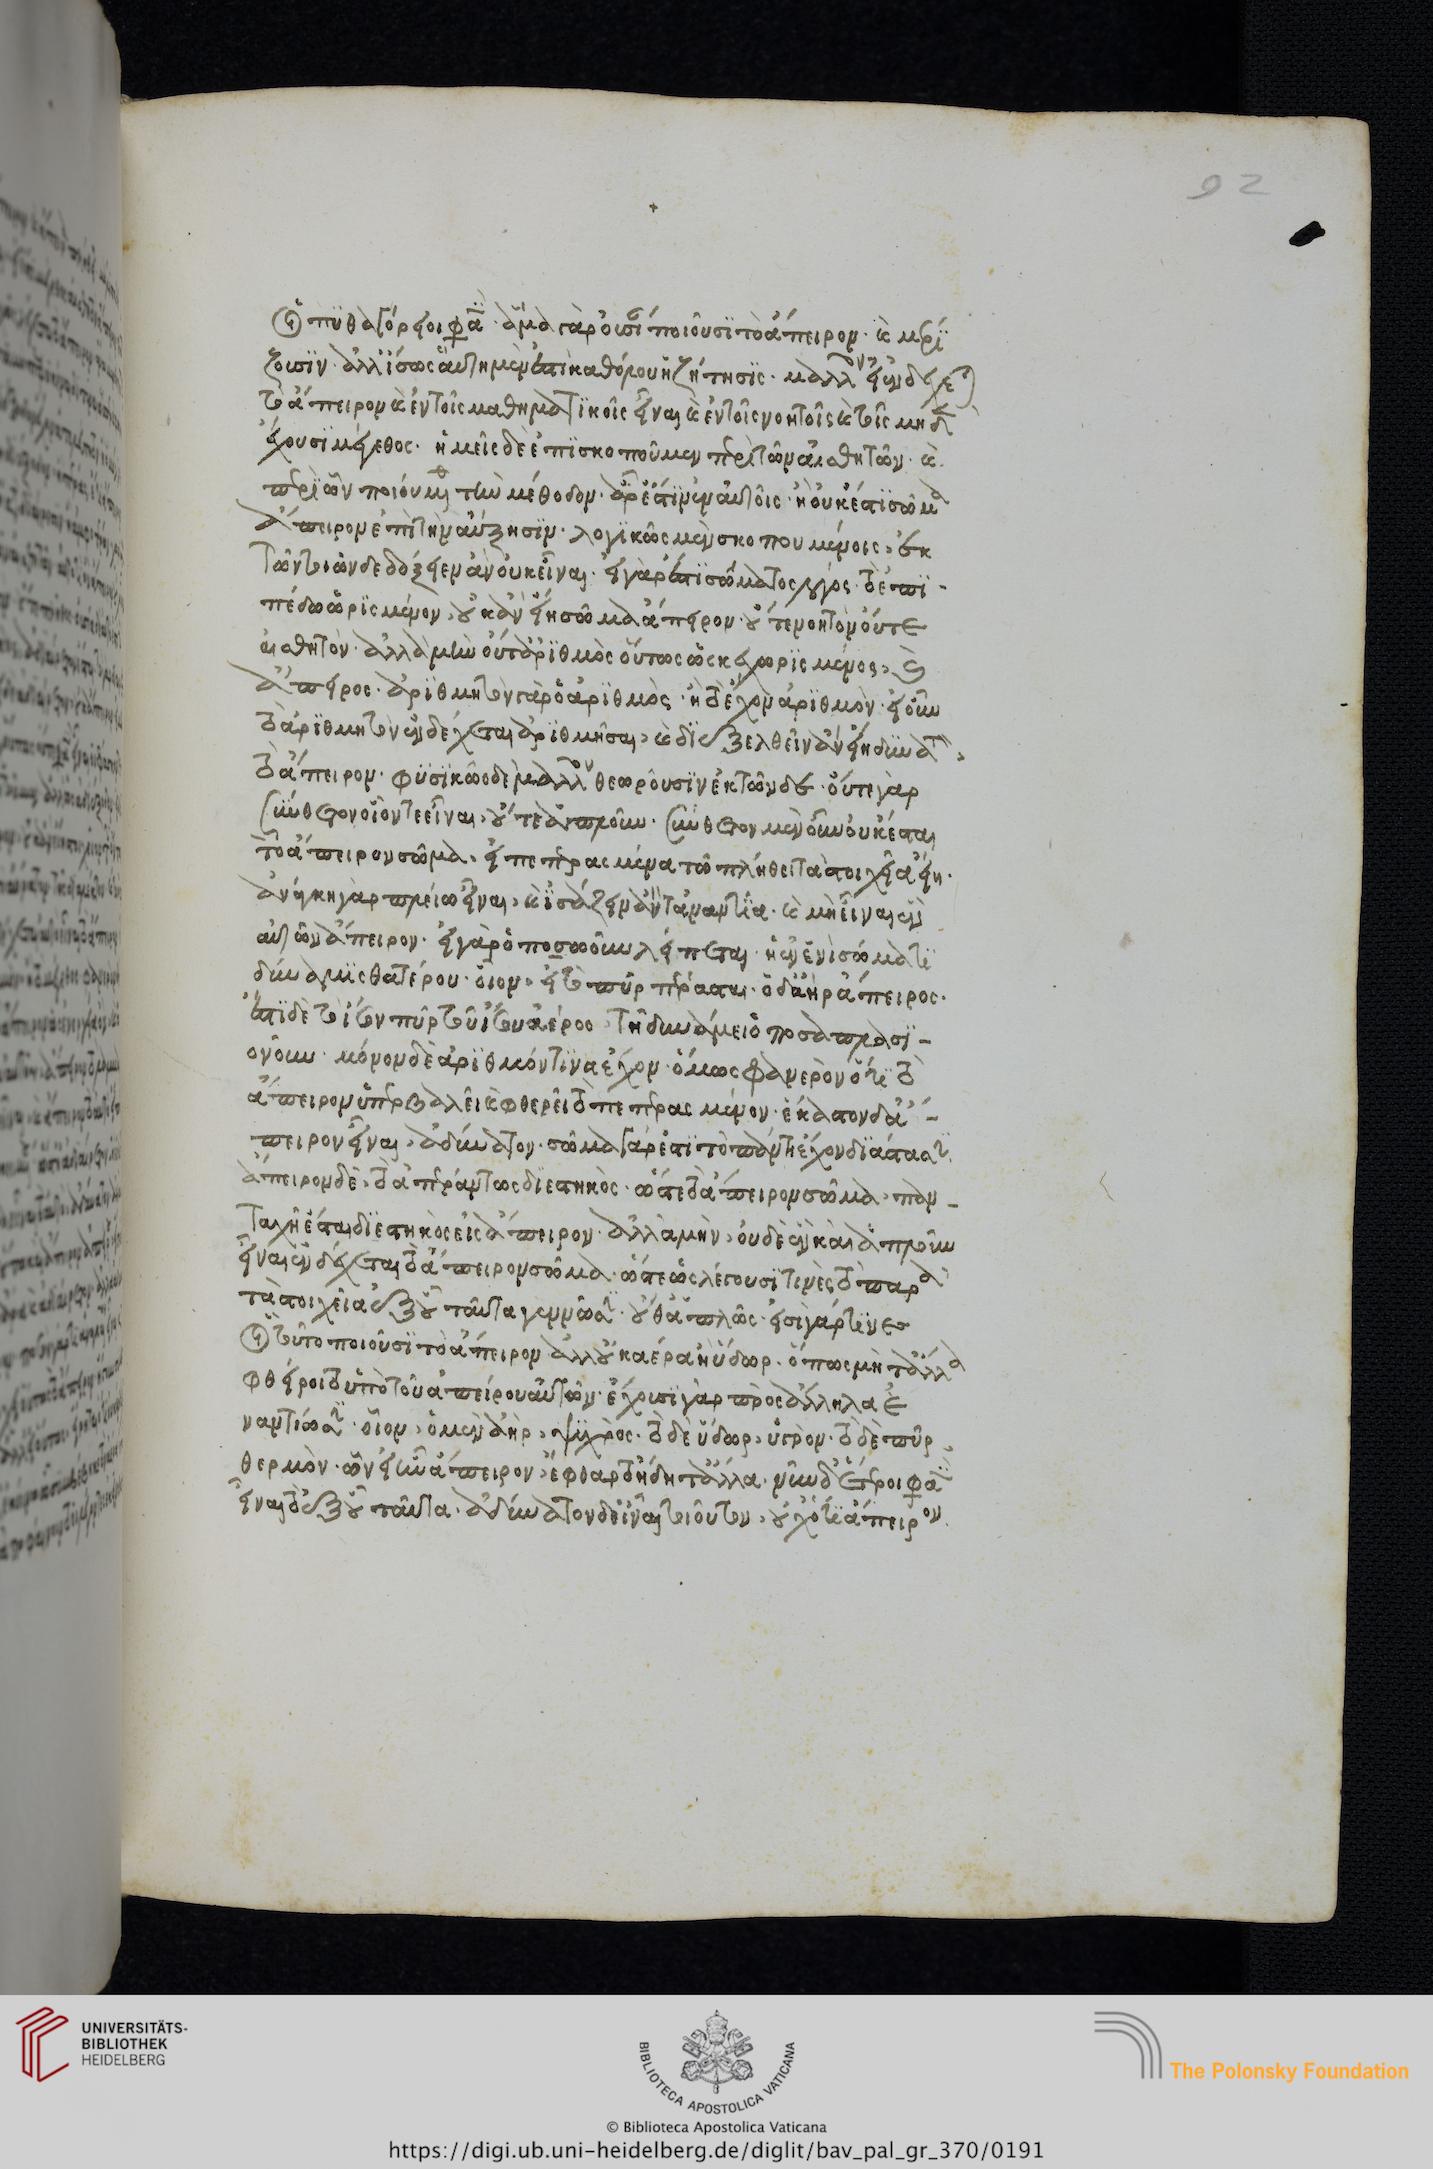 οἱ πυθαγόρειοι φασί· ἅμα γὰρ οὐσίαν ποιοῦσι τὸ ἄπειρον· καὶ μερί
ζουσιν· ἀλλ' ἴσως αὕτη μὲν ἐστὶ καθόλου ἡ ζήτησις· μᾶλλον εἰ ἐνδέχεται
τὸ ἄπειρον καὶ ἐν τοῖς μαθηματικοῖς εἶναι καὶ ἐν τοῖς νοητοῖς καὶ τοῖς μηδὲν
ἔχουσι μέγεθος· ἡμεῖς δὲ ἐπισκοποῦμεν περὶ τῶν αἰσθητῶν· καὶ
περὶ ὧν ποιούμεθα τὴν μέθοδον· ἆρ' ἐστὶν ἐν αὐτοῖς· ἢ οὐκ ἐστὶ σῶμα
ἄπειρον ἐπὶ τὴν αὔξησιν· λογικῶς μὲν σκοπουμένοις, ἐκ
τῶν τοιῶνδε δόξειεν ἂν οὐκ εἶναι· εἰ γάρ ἐστι σώματος λόγος τὸ ἐπι-
πέδω ὡρισμένον, οὐκ ἂν εἴη σῶμα ἄπειρον· οὔτε νοητὸν οὔτε
αἰσθητόν· ἀλλὰ μὴν οὐτ' ἀριθμὸς οὕτως ὡς κεχωρισμένος, καὶ
ἄπειρος· ἀριθμητὸν γὰρ ὁ ἀριθμὸς· ἢ τὸ ἔχον ἀριθμὸν· εἰ οὖν
τὸ ἀριθμητὸν ἐνδέχεται ἀριθμῆσαι, καὶ διεξελθεῖν ἂν εἴη δυνατὸν,
τὸ ἄπειρον· φυσικῶς δὲ μᾶλλον θεωροῦσιν ἐκ τῶνδε· οὔτε γὰρ
σύνθετον οἷόν τε εἶναι, οὔτε ἁπλοῦν· σύνθετον μὲν οὖν οὐκ ἔσται
τὸ ἄπειρον σῶμα, εἰ πεπερασμένα τῶ πλήθει τὰ στοιχεῖα εἴη·
ἀνάγκη γὰρ πλείω εἶναι, καὶ ἰσάζειν ἀεὶ τἀναντία· καὶ μὴ εἶναι ἓν
αὐτῶν ἄπειρον· εἰ γὰρ ὁποσωοῦν λείπεται· ἡ ἐν ἑνὶ σώματι
δύναμις θατέρου· οἷον, εἰ τὸ πῦρ πέρασται· ὁ δ' ἀὴρ ἄπειρος·
ἔστι δὲ τὸ ἴσον πῦρ τοῦ ἴσου ἀέρος, τῆ δυνάμει ὁποσαπλασι-
ονοῦν· μόνον δὲ ἀριθμόν τινα ἔχον· ὅμως φανερὸν ὅτι τὸ
ἄπειρον ὑπερβαλεῖ καὶ φθερεῖ τὸ πεπερασμένον· ἕκαστον δ' ἄ-
πειρον εἶναι, ἀδύνατον· σῶμα γάρ ἐστι τὸ πάντη ἔχον διάστασιν·
ἄπειρον δὲ, τὸ ἀπεράντως διεστηκὸς· ὥστε τὸ ἄπειρον σῶμα, παν-
ταχῆ ἔσται διεστηκὸς εἰς ἄπειρον· ἀλλὰ μὴν, οὐδὲ ἓν καὶ ἁπλοῦν
εἶναι ἐνδέχεται τὸ ἄπειρον σῶμα· οὔτε ὡς λέγουσί τινὲς τὸ παρὰ
τὰ στοιχεῖα ἐξ οὗ ταῦτα γεννῶσιν· οὔθ' ἁπλῶς· εἰσὶ γάρ τινες
οἳ τοῦτο ποιοῦσι τὸ ἄπειρον ἀλλ' οὐκ ἀέρα ἢ ὕδωρ· ὅπως μὴ τἆλλα
φθείροιτο ὑπὸ τοῦ ἀπείρου αὐτῶν· ἔχουσι γὰρ πρὸς ἄλληλα ἐ
ναντίωσιν· οἷον, ὁ μὲν ἀὴρ, ψυχρὸς· τὸ δὲ ὕδωρ, ὑγρὸν· τὸ δὲ πῦρ,
θερμὸν· ὧν εἰ ἦν ἓν ἄπειρον, ἔφθαρτο ἤδη τἆλλα· νῦν δ' ἕτεροι φασὶν
εἶναι τὸ ἐξ οὗ ταῦτα· ἀδύνατον δὲ εἶναι τοιοῦτον, οὐχ ὅτι ἄπειρον·
92
UNIVERSITÄTS-
BIBLIOTHEK
HEIDELBERG
BIBLIOTECA APOSTOLICA VATICANA
The Polonsky Foundation
© Biblioteca Apostolica Vaticana
https://digi.ub.uni-heidelberg.de/diglit/bav_pal_gr_370/0191